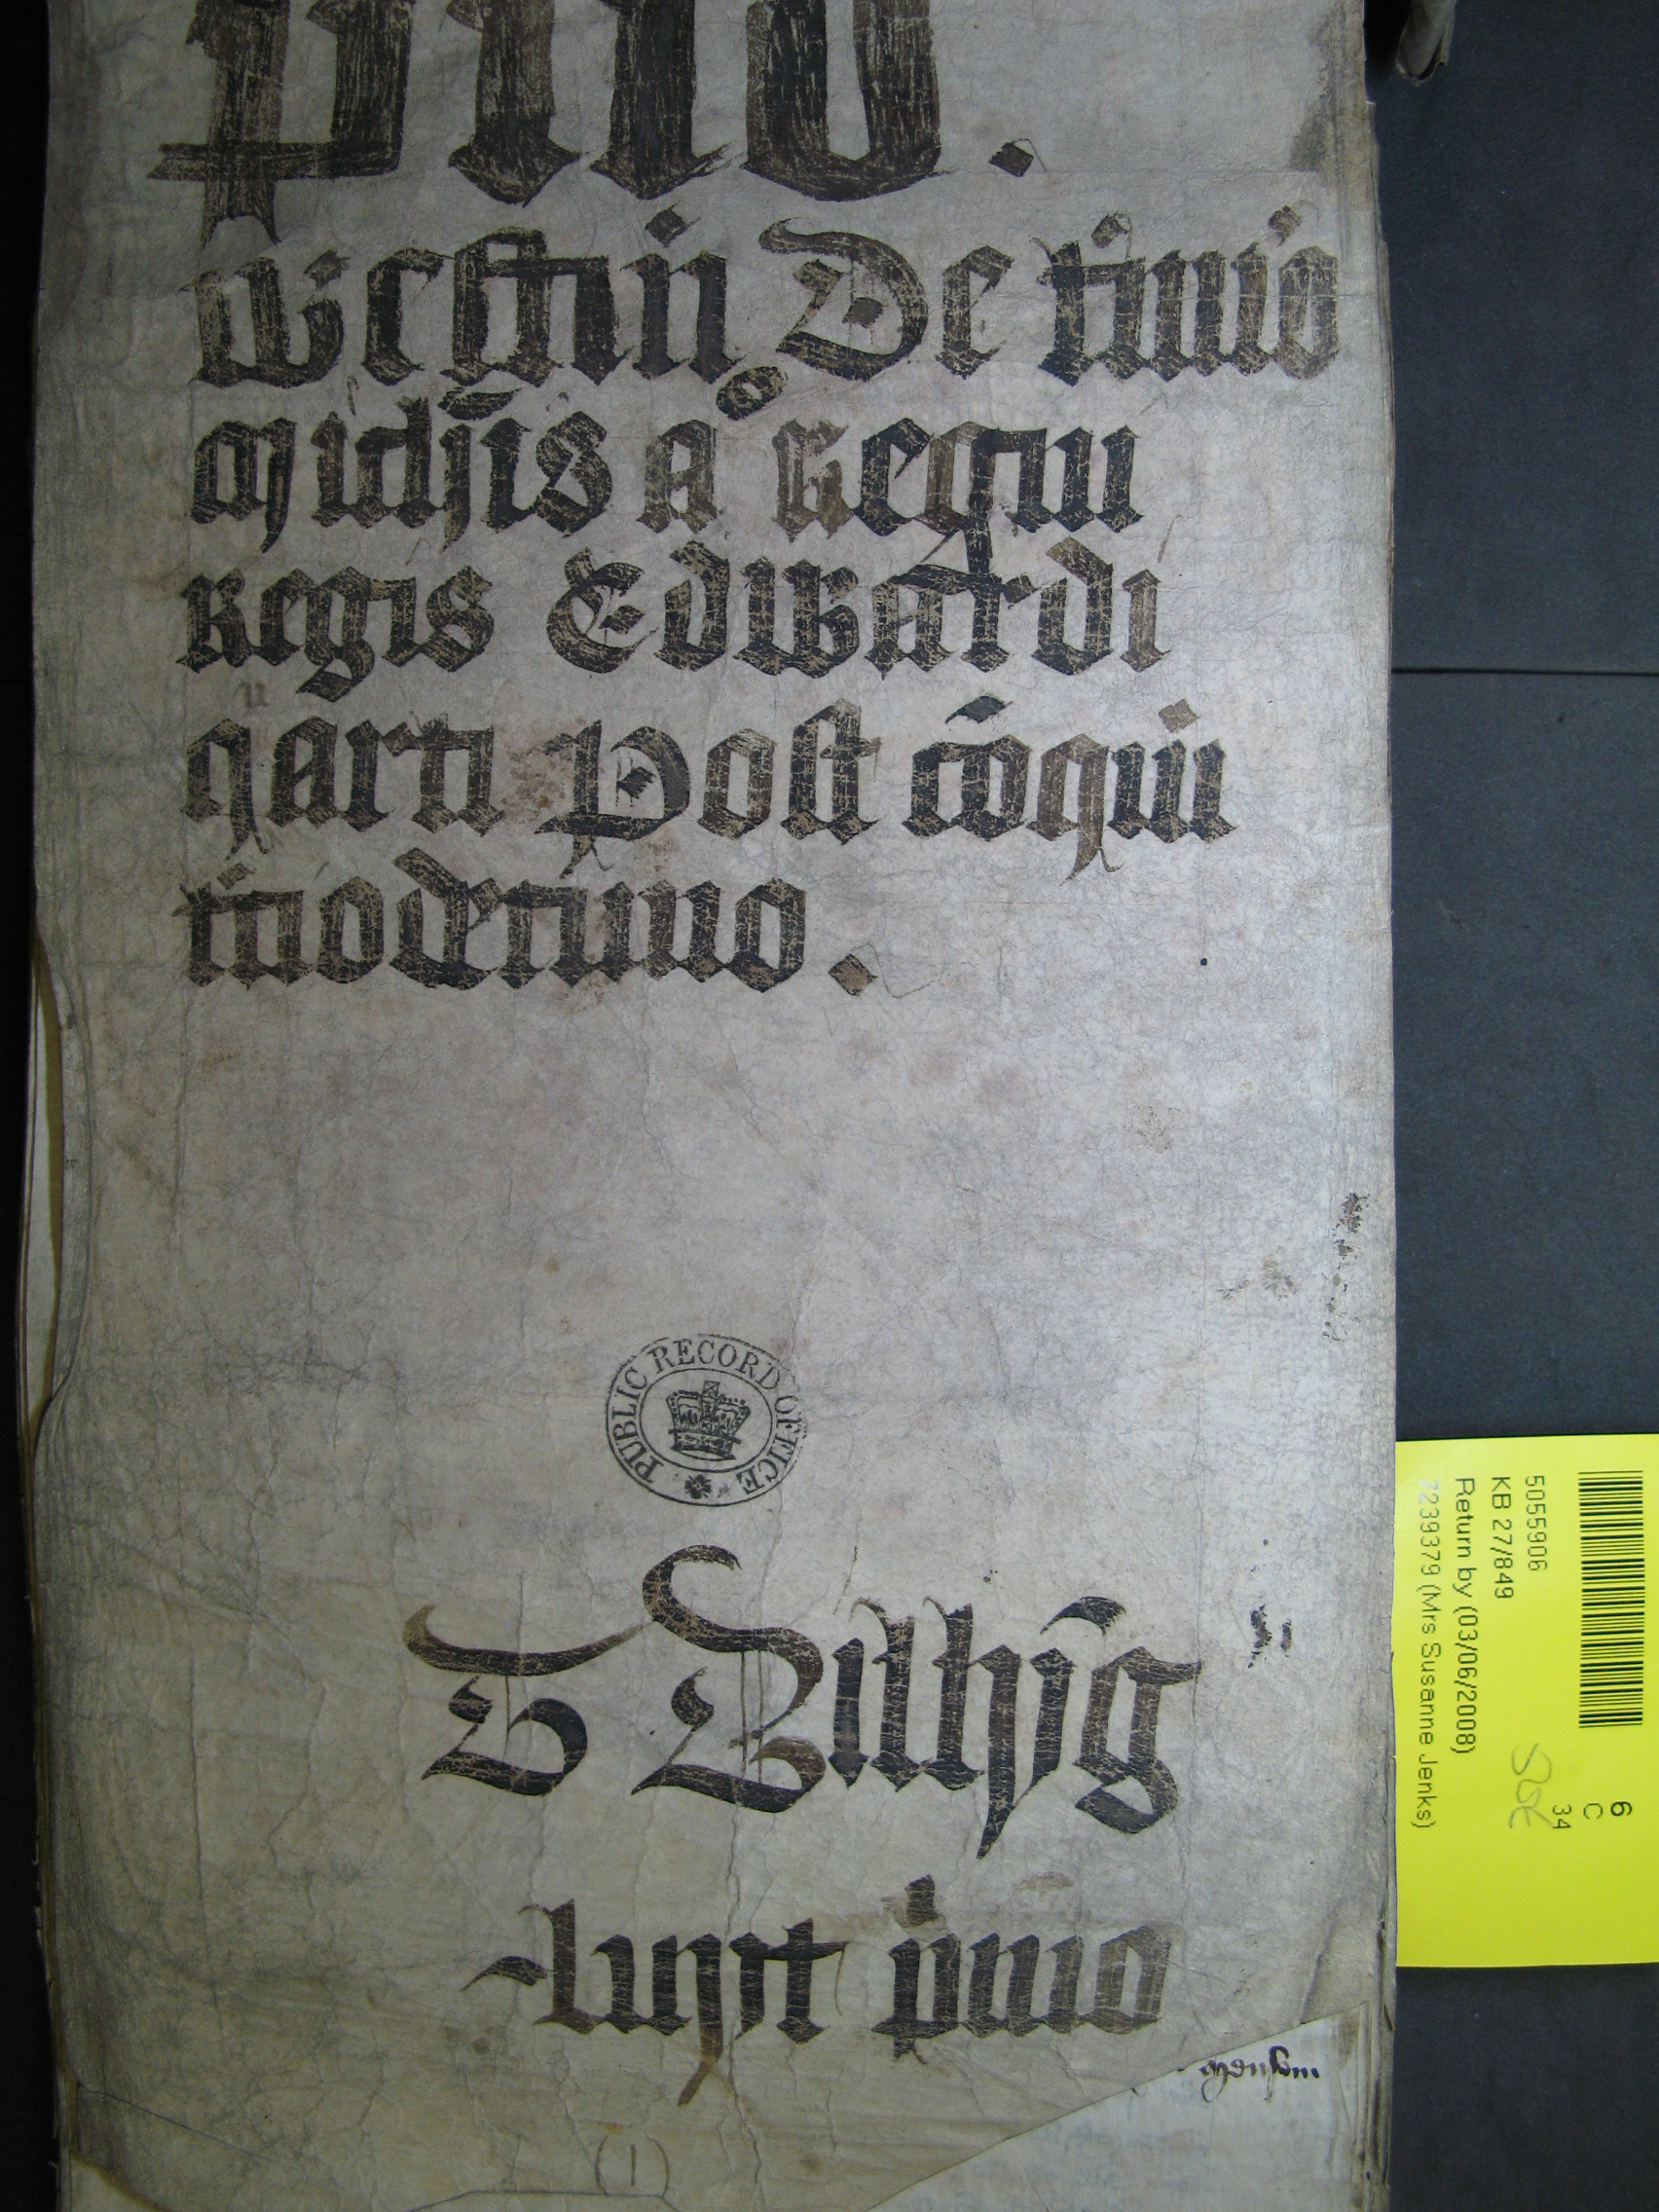 pmo.
westm De t'mio
Mich'is A° Regni
Regis Edwardi
qarti Post co'qui
modernno.
PUBLIC RECORD OFFICE
S Billyng
lunt p'mo
(1)
5055906
KB 27/849
Return by (03/06/2008)
7239379 (Mrs Susanne Jenks)
6
C
34